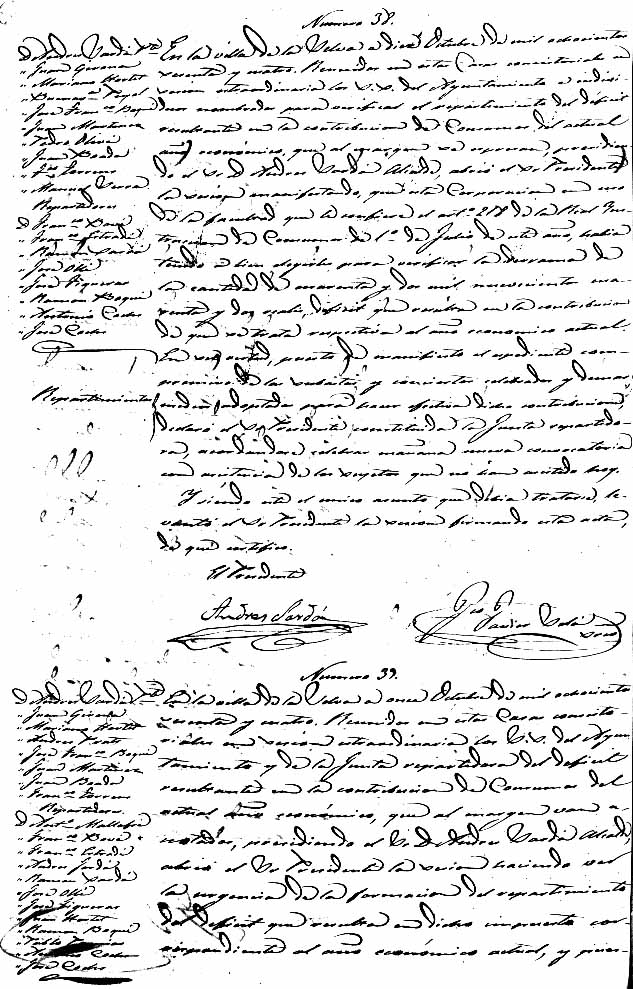 Numero 38.
D. Andres Sardá Pte
" Juan Girona
" Mariano Hortet
" José Franco. Boqué
" Juan Montserra
" Pedro Olivé
" Juan Borda
" Manuel Serra
Repartidores
" Ramon Sardá
" José Ollé
" José Figueras
" Ramon Boqué
" Antonio Codro
" José Codro
Repartimiento
En la villa de la Selva a diez Octubre de mil ochocientos
sesenta y cuatro. Reunidos en estas Casas consistoriales en
sesion extraordinaria los S.S. del Ayuntamiento e indivi-
duos nombrados para verificar el repartimiento del déficit
resultante en la contribucion de Consumos del actual
año económico, que al margen se espresan, presidien-
do el S. D. Andres Sardá Alcalde, abrió el Sr. Presidente
la sesion manifestando, que esta Corporacion en uso
de la facultad que le confiere el art.o 218 de la Real Ins-
truccion de Consumos de 1.o de Julio de este año, habia
tenido a bien elegirlos para verificar la derrama de
la cantidad de cuarenta y dos mil novecientos cua-
renta y dos reales, déficit que resulta en la contribucion
de que se trata respectiva al año economico actual.
En su virtud, puesto de manifiesto el espediente com-
prensivo de las subastas y conciertos celebrados y demas
medios adoptados para hacer efectiva dicha contribucion,
declaró el Sr. Presidente constituida la Junta repartido-
ra, acordandose celebrar mañana nueva convocatoria
con asistencia de los sugetos que no han asistido hoy.
Y siendo este el unico asunto que debia tratarse, le-
vantó el Sr. Presidente la sesion firmando esta acta,
de que certifico.
El Presidente
Andres Sardá
Numero 39.
D. Andres Sardá Pte
" Juan Girona
" Mariano Hortet
" José Franco. Boqué
" Juan Montserra
" Juan Borda
Repartidores
" Ramon Sardá
" José Ollé
" José Figueras
" Juan Hortet
" Ramon Boqué
" Antonio Codro
" José Codro
En la villa de la Selva a once Octubre de mil ochocientos
sesenta y cuatro. Reunidos en estas Casas consisto-
riales en sesion extraordinaria los S.S. del Ayun-
tamiento y de la Junta repartidora del déficit
resultante en la contribucion de Consumos del
actual año económico, que al margen van a-
notados, presidiendo el S. D. Andres Sardá Alcalde,
abrió el Sr. Presidente la sesion haciendo ver
la urgencia de la formacion del repartimiento
del déficit que resulta en dicho impuesto cor-
respondiente al año económico actual, y